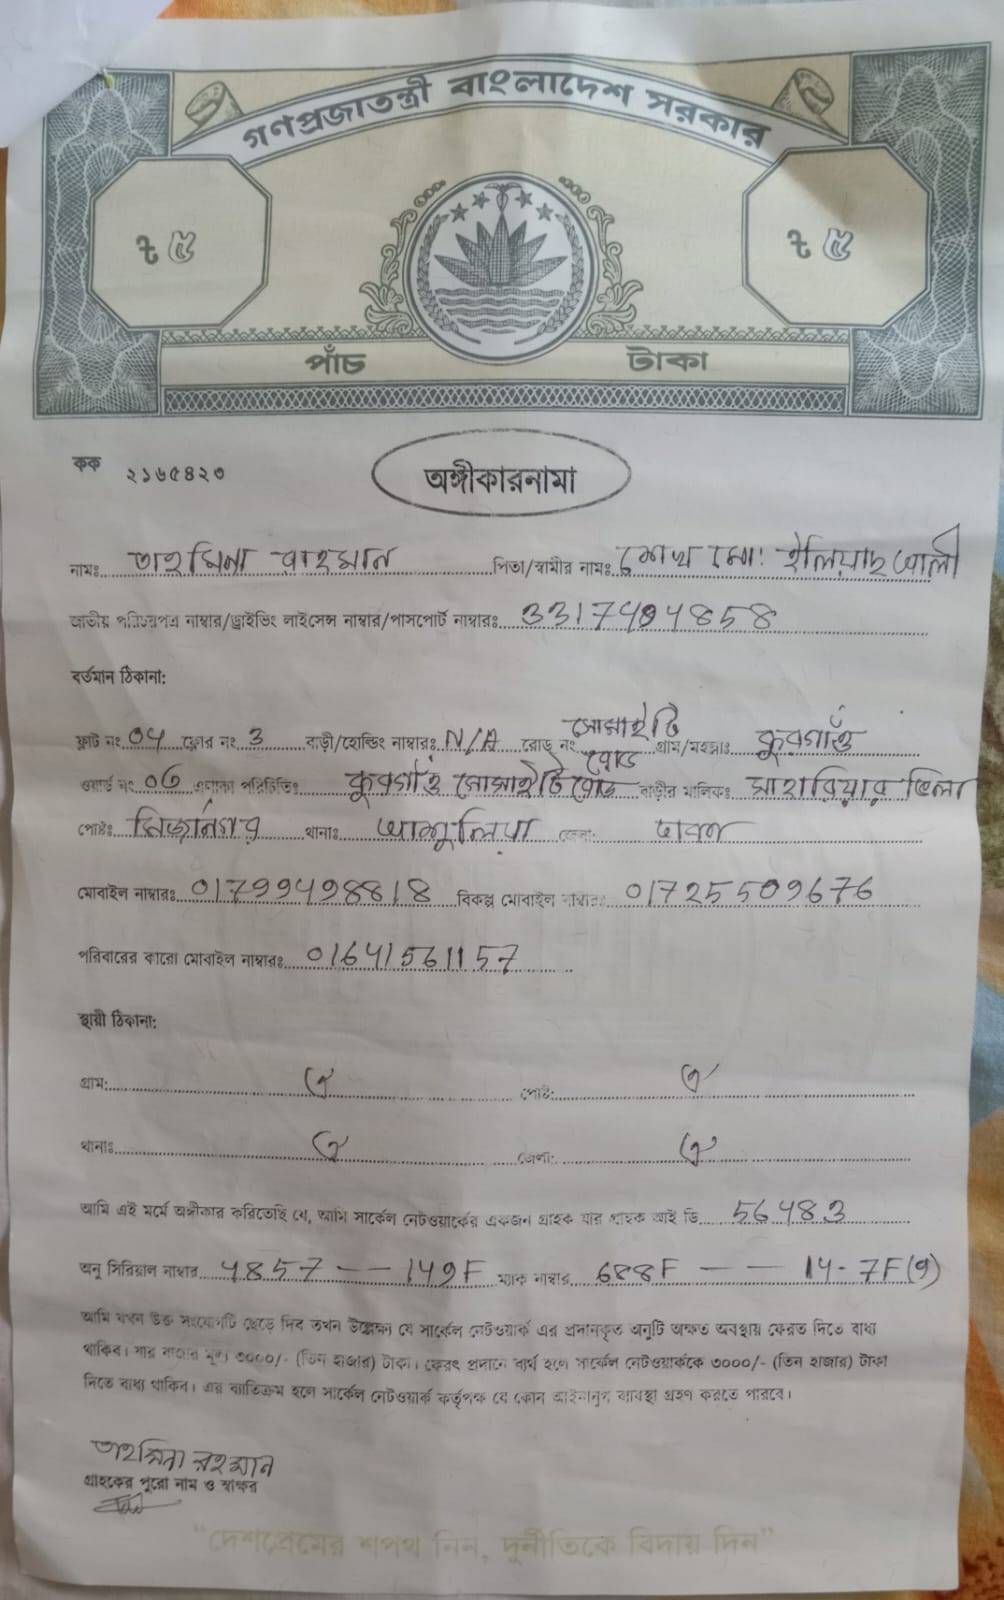 গণপ্রজাতন্ত্রী বাংলাদেশ সরকার
৳ ৫ ৳ ৫
পাঁচ টাকা
কক ২১৬৫৪২৩
অঙ্গীকারনামা
নামঃ তাহমিনা রাহমান পিতা/স্বামীর নামঃ শেখ মো: ইলিয়াছ আলী
জাতীয় পরিচয়পত্র নাম্বার/ড্রাইভিং লাইসেন্স নাম্বার/পাসপোর্ট নাম্বারঃ 3317494858
বর্তমান ঠিকানা:
ফ্লাট নং 04 ফ্লোর নং 3 বাড়ী/হোল্ডিং নাম্বারঃ N/A রোড নং সোসাইটি রোড গ্রাম/মহল্লাঃ কুরগাঁও
ওয়ার্ড নং 06 এলাকা পরিচিতিঃ কুরগাঁও সোসাইটি রোড বাড়ীর মালিকঃ সাহারিয়ার ভিলা
পোষ্টঃ মির্জানগর থানাঃ আশুলিয়া জেলা: ঢাকা
মোবাইল নাম্বারঃ 01799498818 বিকল্প মোবাইল নাম্বারঃ 01725509676
পরিবারের কারো মোবাইল নাম্বারঃ 01641561157
স্থায়ী ঠিকানা:
গ্রাম: ঐ পোষ্ট: ঐ
থানাঃ ঐ জেলা: ঐ
আমি এই মর্মে অঙ্গীকার করিতেছি যে, আমি সার্কেল নেটওয়ার্কের একজন গ্রাহক যার গ্রাহক আই ডি 56483
অনু সিরিয়াল নাম্বার 4857 — — 149F ম্যাক নাম্বার 688F — — 14-7F(9)
আমি যখন উক্ত সংযোগটি ছেড়ে দিব তখন উল্লেক্ষ্য যে সার্কেল নেটওয়ার্ক এর প্রদানকৃত অনুটি অক্ষত অবস্থায় ফেরত দিতে বাধ্য
থাকিব। যার বাজার মূল্য ৩০০০/- (তিন হাজার) টাকা। ফেরৎ প্রদানে ব্যর্থ হলে সার্কেল নেটওয়ার্ককে ৩০০০/- (তিন হাজার) টাকা
দিতে বাধ্য থাকিব। এর ব্যতিক্রম হলে সার্কেল নেটওয়ার্ক কর্তৃপক্ষ যে কোন আইনানুগ ব্যাবস্থা গ্রহণ করতে পারবে।
তাহমিনা রহমান
গ্রাহকের পুরো নাম ও স্বাক্ষর
“দেশপ্রেমের শপথ নিন, দুর্নীতিকে বিদায় দিন”